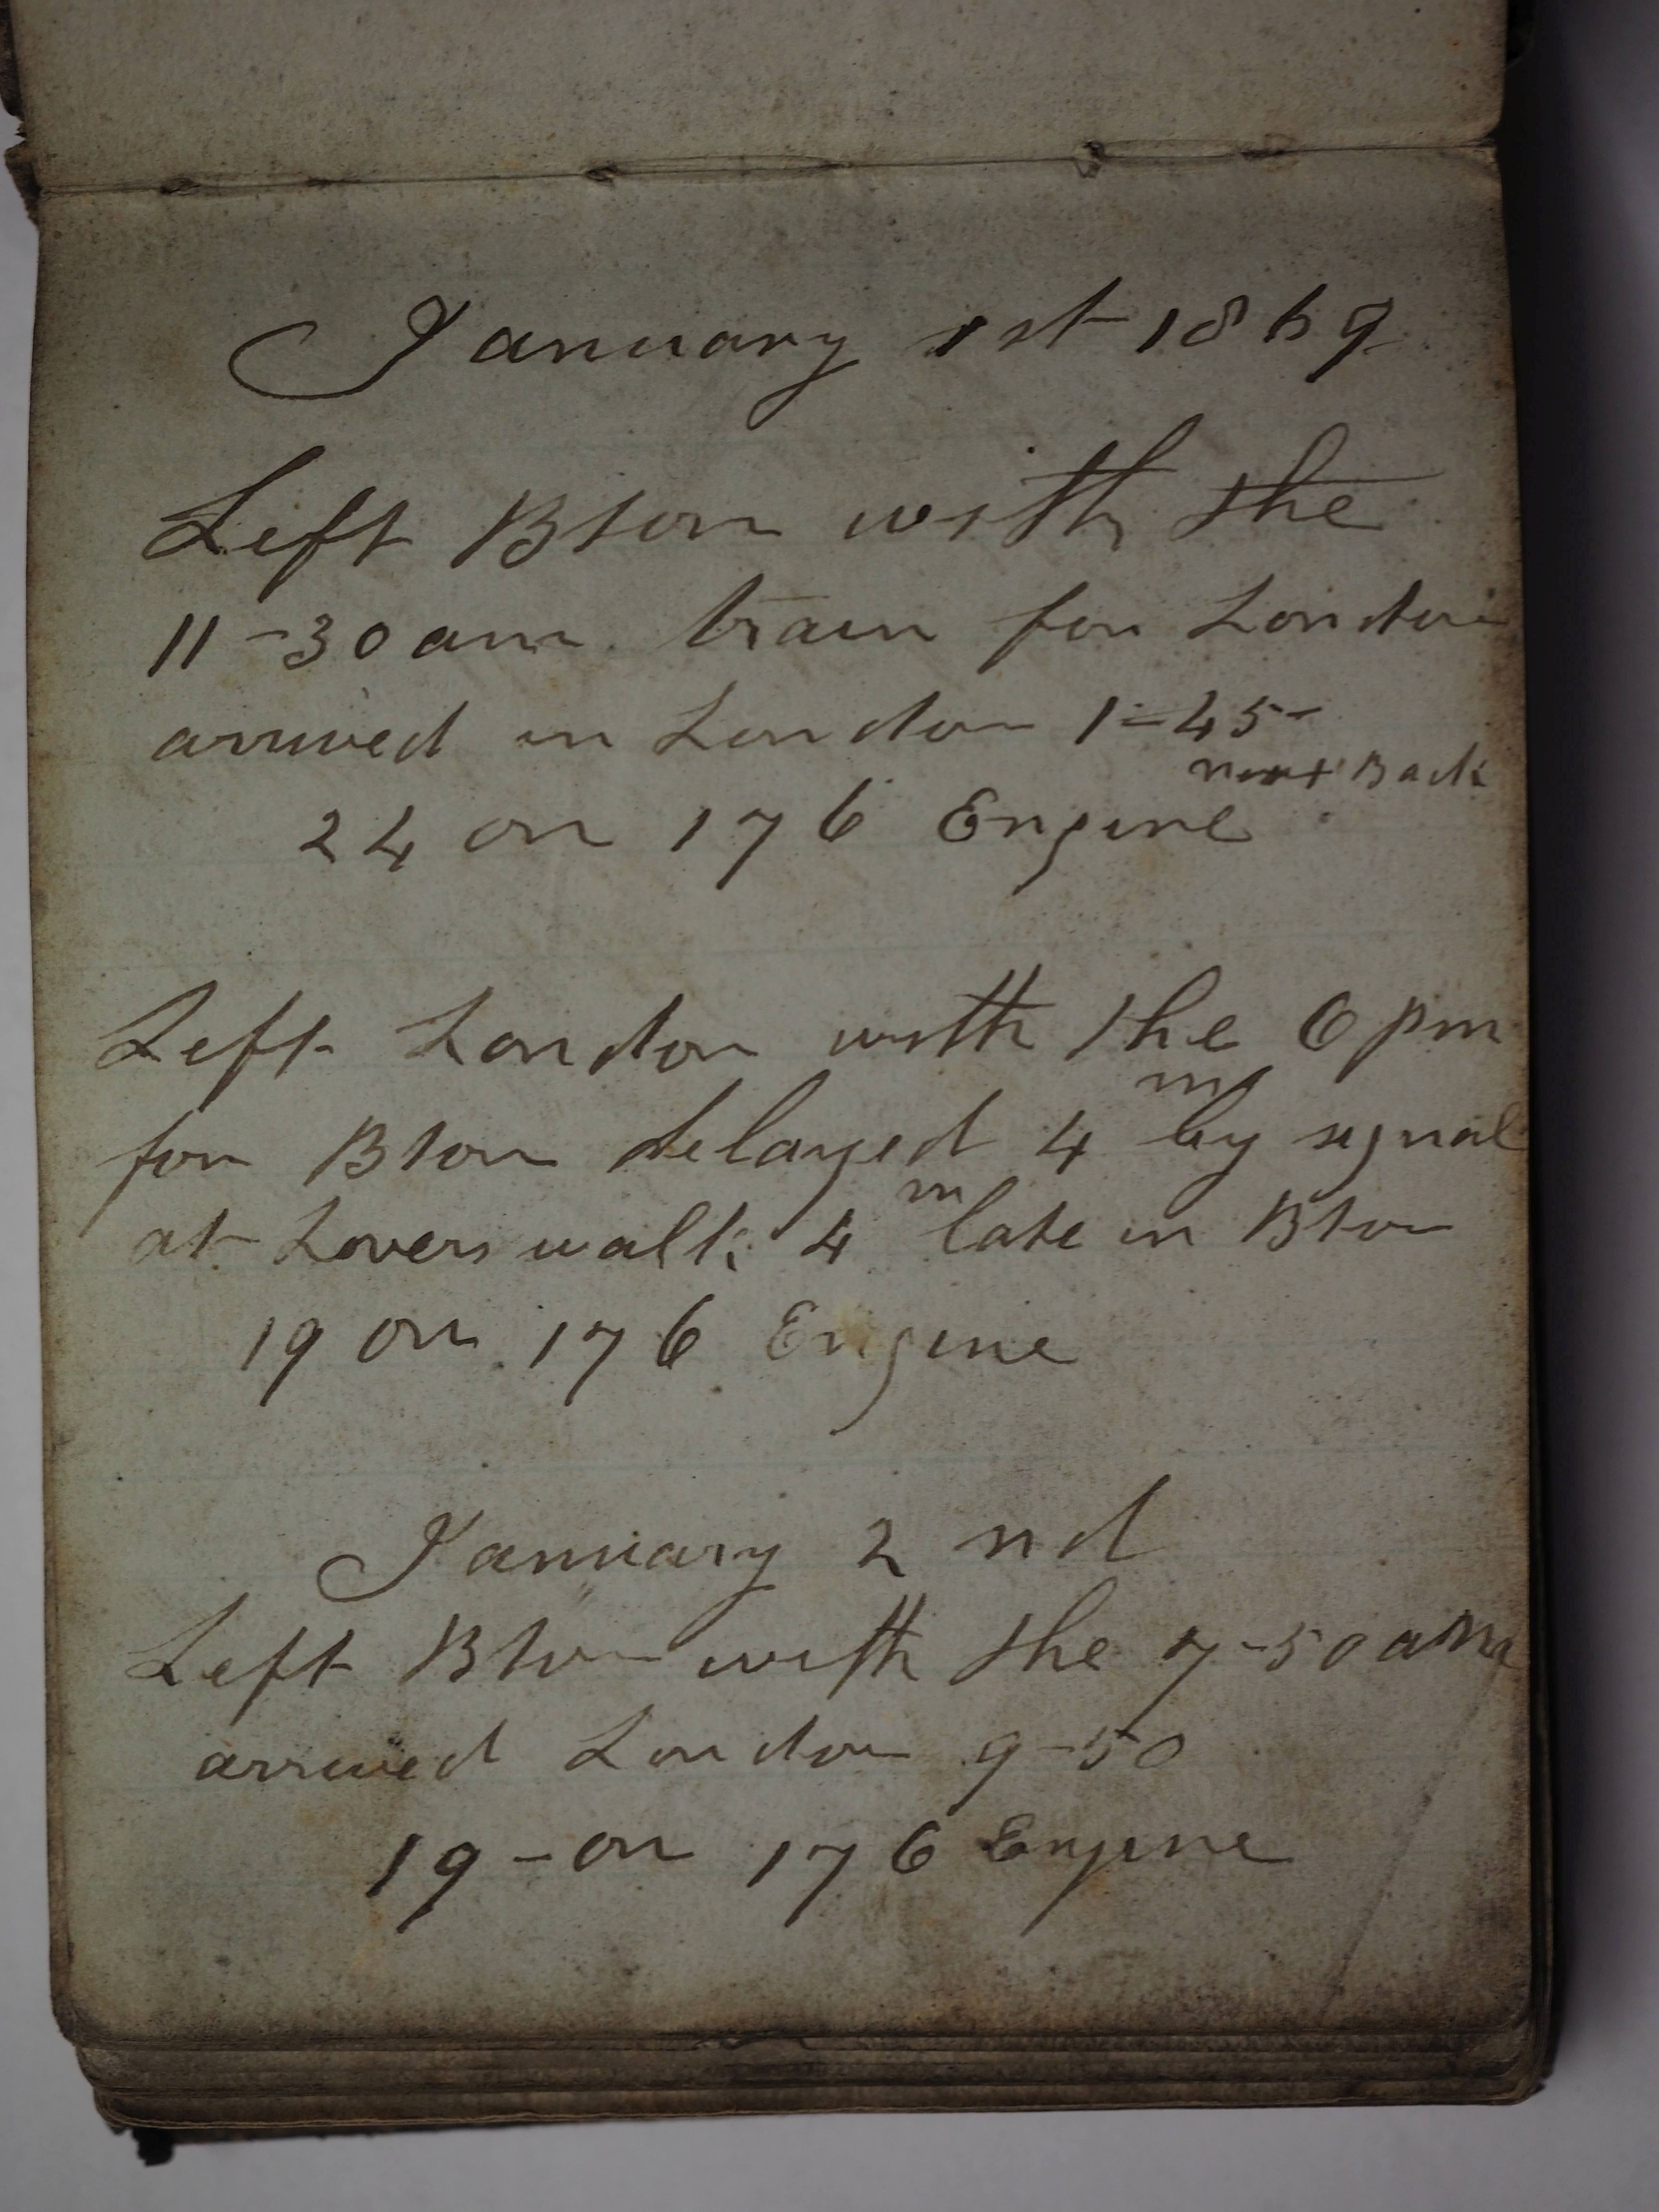 January 1st 1869
Left Bton with the
11-30 am train for London
arrived in London 1-45
24 on 176 Engine
Left London with the 6 pm
for Bton delayed 4 m by signal
at Lovers walk: 4 m late in Bton
19 on 176 Engine
January 2 nd
Left Bton with the 7-50 am
arrived London 9-50
19 - on 176 Engine